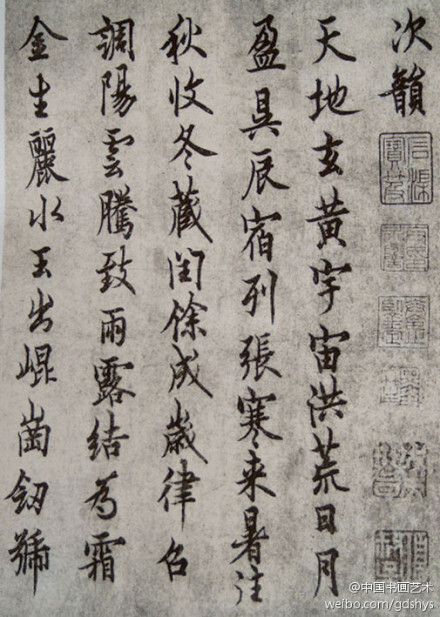 次韻
天地玄黄宇宙洪荒日月
盈昃辰宿列張寒来暑往
秋收冬藏閏餘成歲律召
調陽雲騰致雨露結為霜
金生麗水玉出崐崗釼號
@中国书画艺术
weibo.com/gdshys